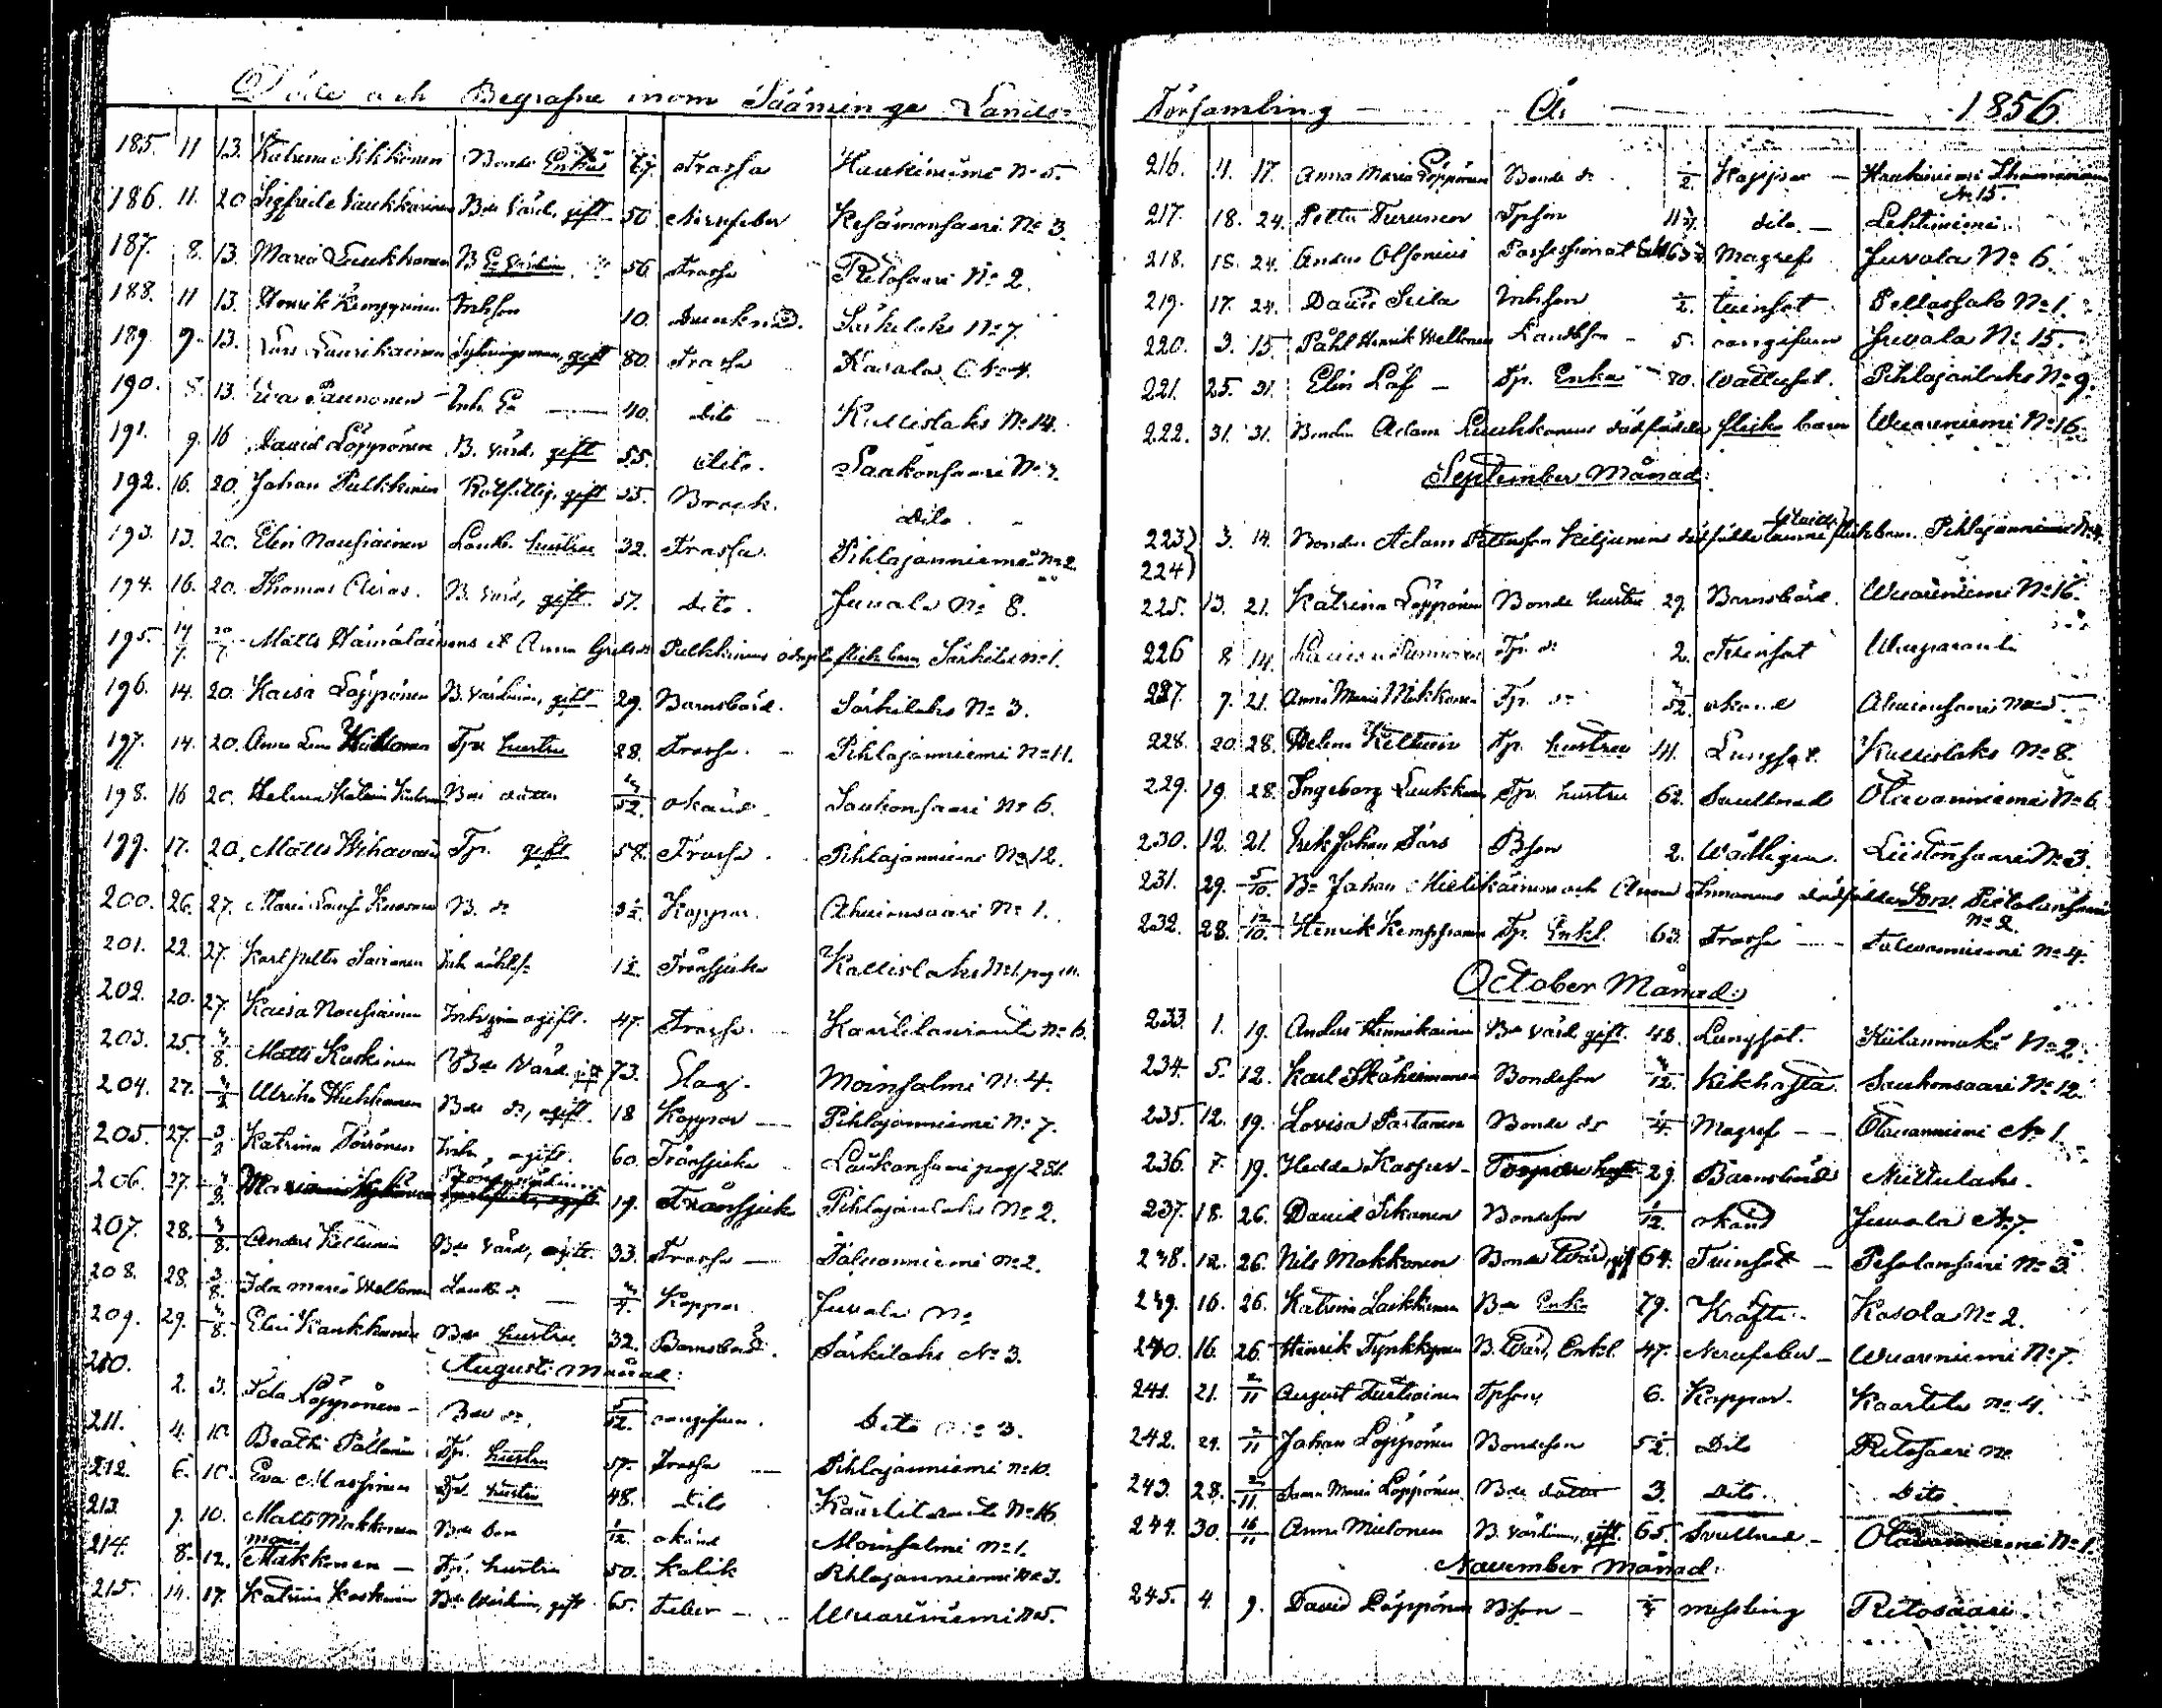 Döde och Begrafne inom Sääminge Lands-
185. 11 13. Katrina Nikkonen Bonde Enka 67. Frossa Haukiniemi No 5.
186. 11. 20 Sigfrid Laukkarinen Bde Värd, gift 50. Nervfeber Kesämonsaari No 3.
187. 8. 13. Maria Luukkonen B Ee Värdinna 56 Frossa Ritosaari No 2.
188. 11 13. Henrik Kemppinen Inhson 10. drunknad. Särkilaks No 7.
189. 9. 13. Lars Laurikainen Sytningsman, gift 80. Frossa Kasala No 4.
190. 8. 13. Eva Paunonen Inh. Ea 40. dito Kallislaks No 14.
191. 9. 16 David Löppönen B. värd. gift 55. dito. Saukonsaari No 7.
192. 16. 20. Johan Pulkkinen Rotfattig, gift 55. Bråck. Dito.
193. 13. 20. Elin Nousiainen Landb. hustru 32. Frossa. Pihlajanniemi No 2.
194. 16. 20. Thomas Airas. B. värd, gift. 57. dito. Juvala No 8.
195. 14/7 20/7 Matts Hämäläinens et Anna Pulkkinens flick barn Särkilax No 1.
196. 14. 20. Kaisa Löppönen B. värdinna, gift 29. Barnsbörd. Särkilaks No 3.
197. 14. 20. Anna Lena Tpr hustru 28. Frossa. Pihlajanniemi No 11.
198. 16 20. Helena Katrina Bde dotter 52. okänd. Saukonsaari No 6.
199. 17. 20. Matts Wihavain Tpr. gift 58. Frossa. Pihlajanniemi No 12.
200. 26. 27. Maria Kuosman B. dr 3½ Koppor. Ahvionsaari No 1.
201. 22. 27. Karl Petter Sairanen Inh 1½ Trånsjuka Kallislaks No 1. pag
202. 20. 27. Kaisa Nousiainen Inh ogift. 47. Frossa. Kaartilanranta No 6.
203. 25. 3/8. Matts Koskinen Bde Värd, gift 73. Slag. Moinsalmi No 4.
204. 27. 3/8 Ulrika Bde dr, ogift. 18 Koppor Pihlajanniemi No 7.
205. 27. 3/8 Katrina Torrönen Inh, ogift. 60. Trånsjuka Saukonsaari pag 281.
206. 27. 3/8. 19. Trånsjuk Pihlajanlaks No 2.
207. 28. 3/8. Anders Kettunen Bde Värd, ogift. 33. Frossa Talvanniemi No 2.
208. 28. 3/8. Ida Maria Weltonen Landb. dr Koppor Juvala No
209. 29. 3/8. Elin Kankkunen Bde hustru 32. Barnsbörd. Särkilaks No 3.
Augusti Månad:
210. 2. 3. Ida Löppönen Bde dr, 5/52. oangifven. Dito No 3.
211. 4. 10. Beata Pöllänen Tpr. hustru 57. Frossa Pihlajanniemi No 10.
212. 6. 10. Eva Massinen Tpr. hustru 48. dito Kaartilanranta No 16.
213 7. 10. Matts Makkonen Bde Son 1/12. okänd Moinsalmi No 1.
214. 8. 12. Maria Makkonen Tpr. hustru 50. Kolik Pihlajanniemi No 3.
215. 14. 17. Katrina Koskinen Bde Värdinna, gift 65. Feber Wuoriniemi No 5.
Församling År 1856.
216. 11. 17. Anna Maria Löppönen Bonde dr ½. Koppor Haukiniemi No 15.
217. 18. 24. Petter Turunen Tpson dito. Lehtiniemi.
218. 18 24. Anders Olsonius Possessionat Enkl 63 Magref Juvala No 6.
219. 17. 24. David Seila Inhson ½. tvinsot Pellossalo No 1.
220. 3. 15. Påhl Henrik Weltonen Landbson 5. oangifven Juvala No 15.
221. 25. 31. Elin Löf Tpr. Enka 80. Wattusot. Pihlajanlaks No 9.
222. 31. 31. Bonden Adam Luukkonens dödfödda flicke barn Wuoriniemi No 16.
September Månad:
223) 224) 3. 14. Bonden Adam Pettersson Kiljunens dödfödda flickbarn. Pihlajanniemi No 4.
225. 13. 21. Katrina Löppönen Bonde hustru 29. Barnsbörd. Wuoriniemi No 16.
226 8 14. Tpr. dr 2. Tvinsot
227. 7. 21. Anna Maria Nikkonen Tpr. dr 52. okänd Ahvionsaari No 5.
228. 20. 28. Helena Kettunen Tpr. hustru 41. Lungsot. Kallislaks No 8.
229. 19. 28. Ingeborg Luukkonen Tpr. hustru 62. Svullnad Otavanniemi No 6.
230. 12. 21. Erik Johan Pars Bson 2. Wådligen. Liistonsaari No 3.
231. 29. 5/10. Br Johan Mielikäinens och Anna Immonens dödfödde Son. Pistolansaari No 2.
232. 28. 12/10. Henrik Kemppinen Tpr. Enkl. 63. Frossa Talvanniemi No 4.
October Månad:
233. 1. 19. Anders Hannikainen Bde värd gift. 48. Lungsot. Kiilanmäki No 2.
234. 5. 12. Karl Ikäheimonen Bondeson 12. Kikhosta. Saukonsaari No 12.
235. 12. 19. Lovisa Partanen Bonde dr Magref Otavanniemi No 1.
236. 7. 19. Hedda Kasper Torpare hust 29. Barnsbörd Niittulaks.
237. 18. 26. David Sikanen Bondeson 1/12. okänd Juvala No 7.
238. 12. 26. Nils Makkonen Bonde Värd, gift 64. Tvinsot Pesolansaari No 3.
239. 16. 26. Katrina Laukkanen Bde Enka 79. Kräfta. Kosola No 2.
240. 16. 26. Henrik Tynkkynen B. Värd, Enkl. 47. Nervfeber Wuoriniemi No 7.
241. 21. 2/11 August Turtiainen Tpson, 6. Koppor. Kaartila No 4.
242. 24. 2/11 Johan Löppönen Bondeson 5½. Dito Ritosaari No
243. 28. 2/11. Anna Maria Löppönen Bde dotter 3. Dito. Dito
244. 30. 16/11 Anna Mielonen B. värdinna, gift. 65. Svullnad Otavanniemi No 1.
November Månad:
245. 4. 9. David Löppönen Bson ¾ messling Ritosaari.